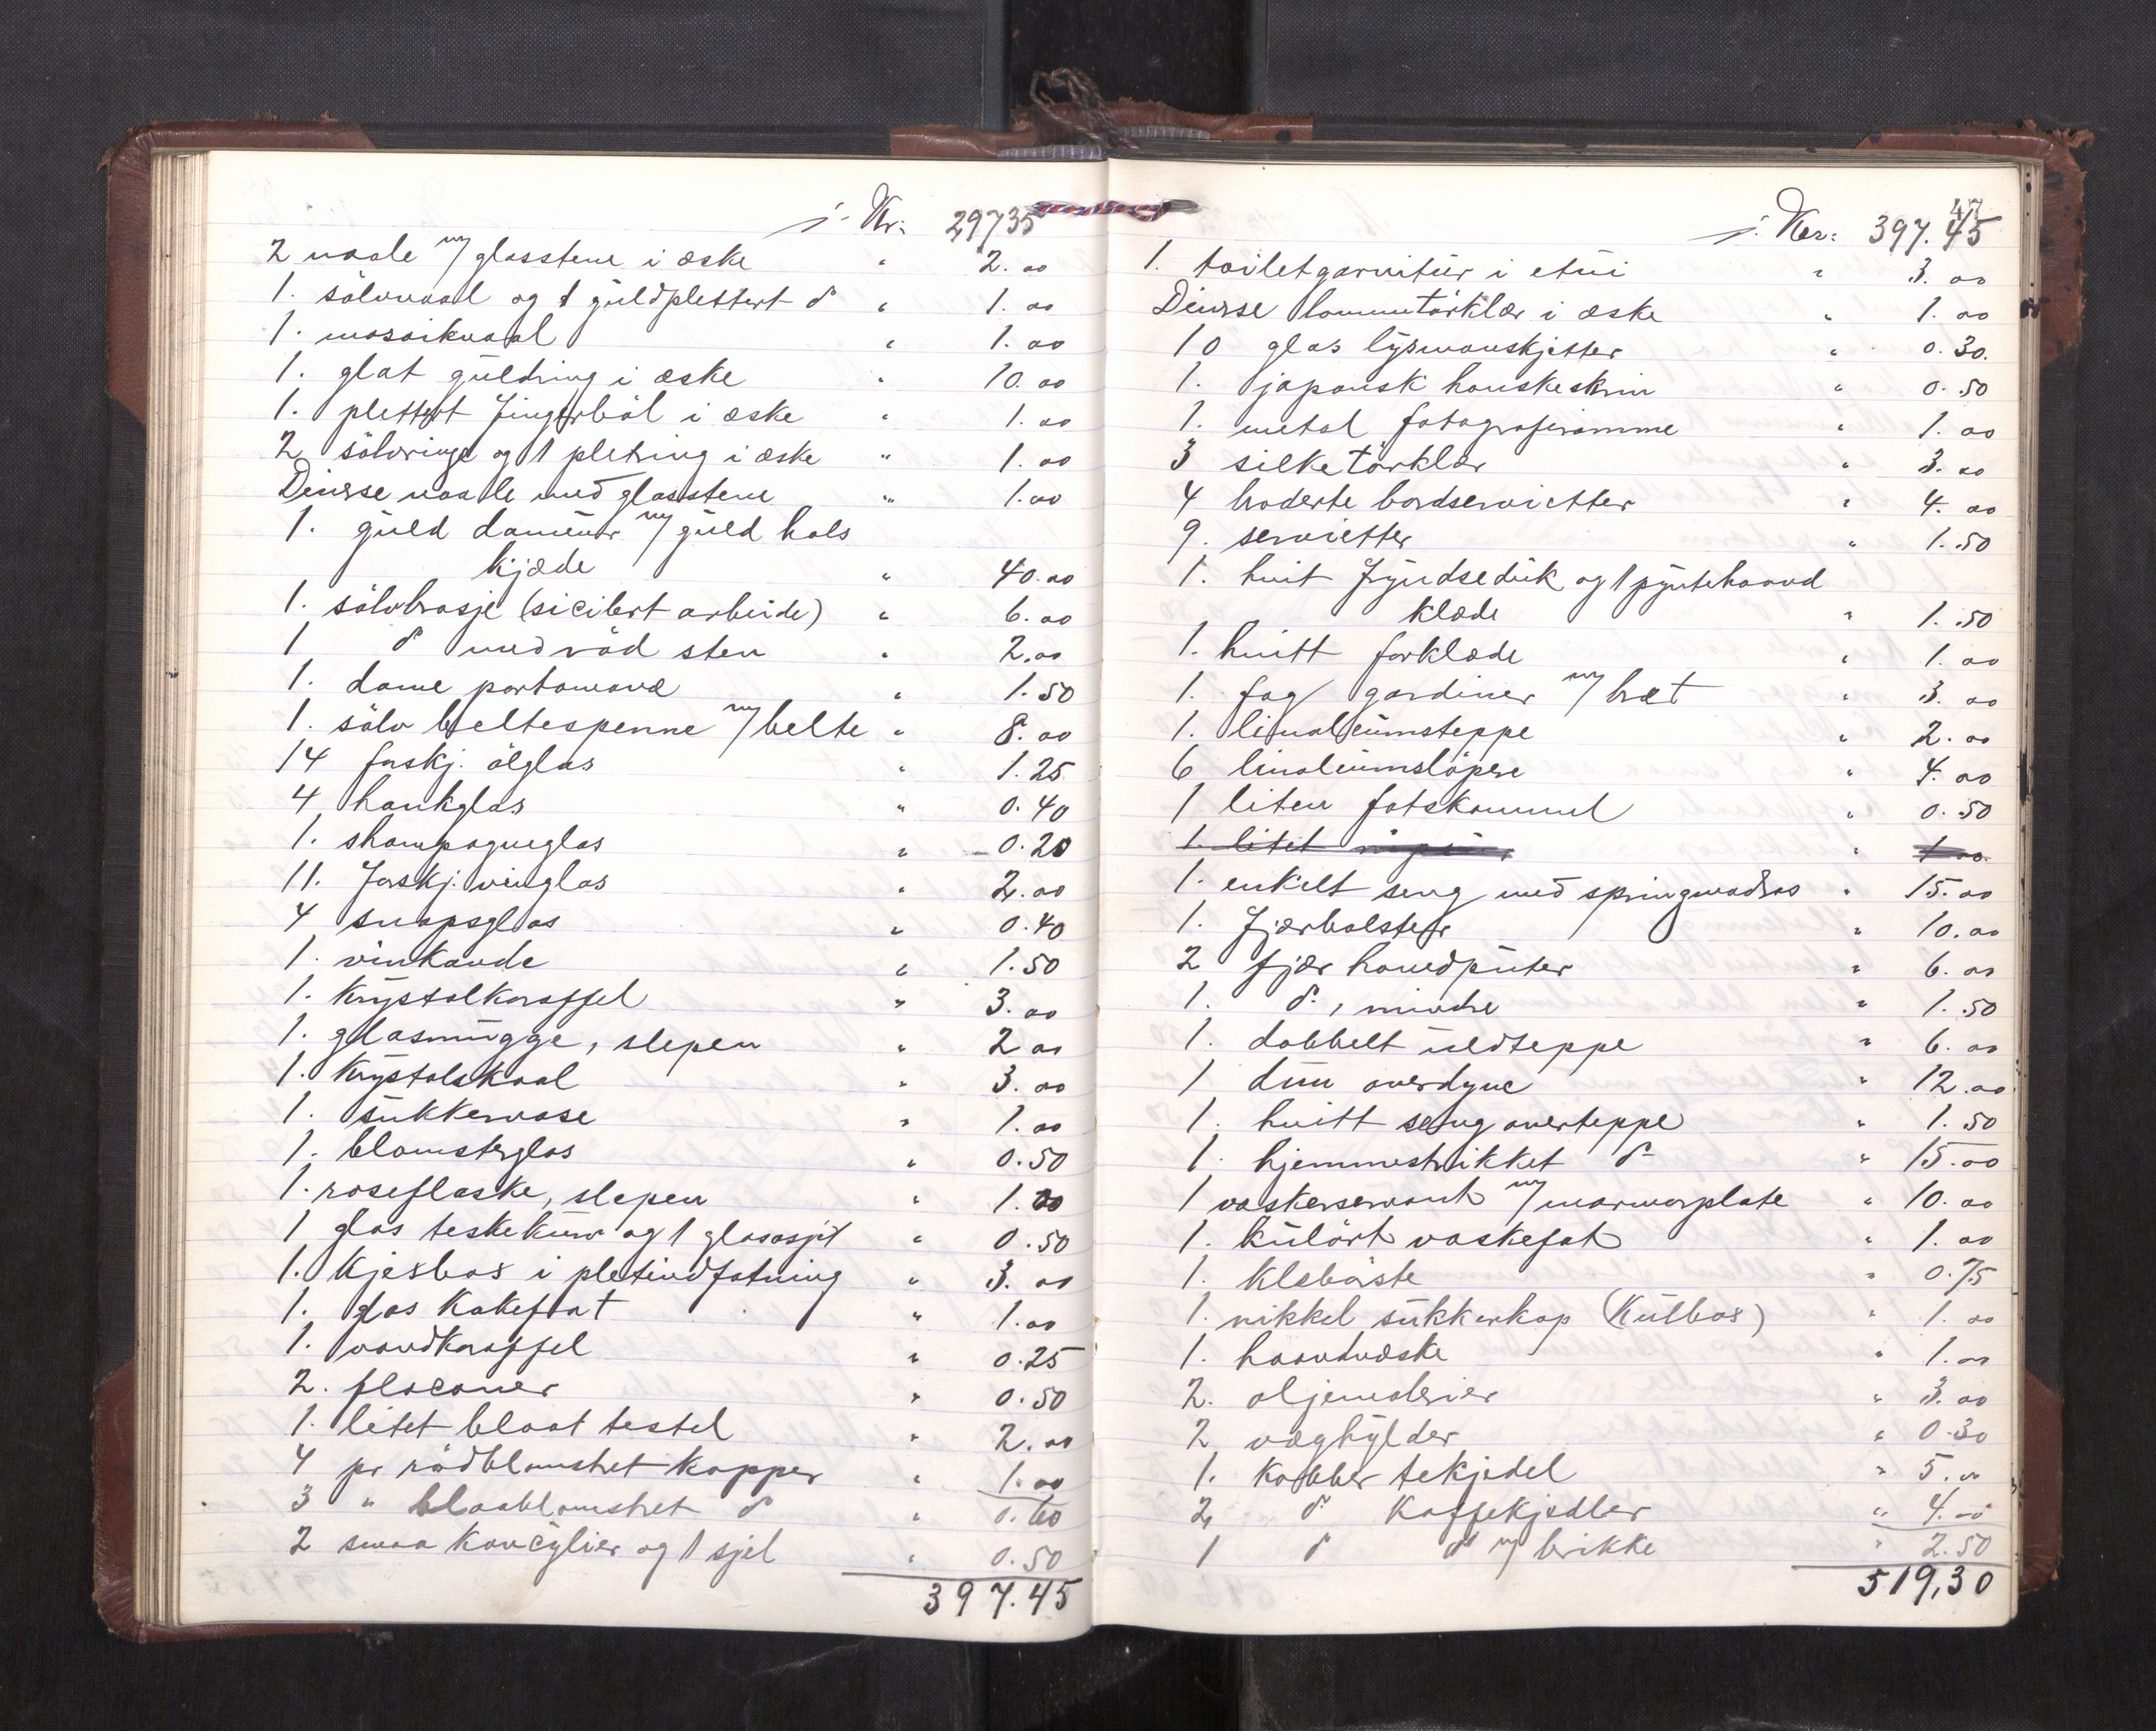 Kr. 29735
2 naale m/ glasstene i æske " 2.00
1. sölvnaal og 1 guldplettert do " 1.00
1. mosaiknaal " 1.00
1. glat guldring i æske " 10.00
1. plettert fingerböl i æske " 1.00
2 sölvringe og 1 pletring i æske " 1.00
Diverse naale med glasstene " 1.00
1. guld dameur m/ guld hals
kjæde " 40.00
1. sölvbrosje (sicilert arbeide) " 6.00
1 do med röd sten " 2.00
1. dame portomonæ " 1.50
1. sölv beltespenne m/ belte " 8.00
14 forskj. ölglas " 1.25
4 hankglas " 0.40
1. shampagneglas " 0.20
11. forskj. vinglas " 2.00
4 snapsglas " 0.40
1. vinkande " 1.50
1. Krystalkaraffel " 3.00
1. glasmugge, slepen " 2 00
1. Krystalskaal " 3.00
1. sukkervase " 1.00
1. blomsterglas " 0.50
1. roseflaske, slepen " 1.00
1 glas teskekurv og 1 glasasjet " 0.50
1. Kjeksbox i pletindfatning " 3.00
1. glas Kakefat " 1.00
1. vandkaraffel " 0.25
2. flaconer " 0.50
1. litet blaat testel " 2.00
4 pr rödblomstret Kopper " 1.00
3 " blaablomstret do " 0.60
2 smaa Koncylier og 1 sjel " 0.50
397.45
47
Kr: 397.45
1. toiletgarnitur i etui " 3.00
Diverse lommetörklær i æske " 1.00
10 glas lysmanskjetter " 0.30.
1. japansk hanskeskrin " 0.50
1. metal fotografiramme " 1.00
3 silketörklær " 3.00
4 broderte bordservietter " 4.00
9. servietter " 1.50
1. hvit fryndseduk og 1 pyntehaand
klæde " 1.50
1. hvitt forklæde " 1.00
1. fag gardiner m/ bræt " 3.00
1. linoleumsteppe " 2.00
6 linoleumslöpere " 4.00
1 liten fotskammel " 0.50
1. litet " 1 00
1. enkelt seng med springmadras " 15.00
1. fjærbolster " 10.00
2 fjær hovedputer " 6.00
1. do, mindre " 1.50
1. dobbelt uldteppe " 6.00
1 dun overdyne " 12.00
1. hvitt seng overteppe " 1.50
1. hjemmestrikket do " 15.00
1 vaskeservant m/ marmorplate " 10.00
1. kulört vaskefat " 1.00
1. Klebörste " 0.75
1. nikkel sukkerkop (Kulbox) " 1.00
1. haandvæske " 1.00
2. oljemalerier " 3.00
2 væghylder " 0.30
1. Kobber tekjedel " 5.00
2 do Kaffekjedler " 4.00
1 do do m/ brikke " 2.50
519,30